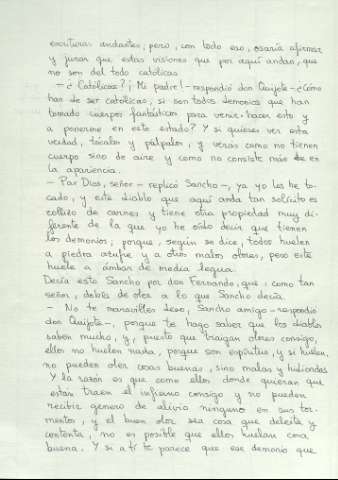 escrituras andantes; pero, con todo eso, osaría afirmar
y jurar que estas visiones que por aquí andan, que
no son del todo católicas.
- ¿Católicas? ¡Mi padre! - respondió don Quijote - ¿Cómo
han de ser católicas, si son todos demonios que han
tomado cuerpos fantásticos para venir a hacer esto y
a ponerme en este estado? Y si quieres ver esta
verdad, tócalos y pálpalos, y verás como no tienen
cuerpo sino de aire y como no consiste más de en
la apariencia.
- Par Dios, señor - replicó Sancho -, ya yo les he to-
cado, y este diablo que aquí anda tan solícito es
rollizo de carnes y tiene otra propiedad muy di-
ferente de la que yo he oído decir que tienen
los demonios, porque, según se dice, todos huelen
a piedra azufre y a otros malos olores, pero este
huele a ámbar de media legua.
Decía esto Sancho por don Fernando, que, como tan
señor, debía de oler a lo que Sancho decía.
- No te maravilles deso, Sancho amigo - respondió
don Quijote -, porque te hago saber que los diablos
saben mucho, y, puesto que traigan olores consigo,
ellos no huelen nada, porque son espíritus, y si huelen,
no pueden oler cosas buenas, sino malas y hidiondas.
Y la razón es que como ellos, donde quieran que
están, traen el infierno consigo y no pueden
recibir género de alivio ninguno en sus tor-
mentos, y el buen olor sea cosa que deleita y
contenta, no es posible que ellos huelan cosa
buena. Y si a tí te parece que ese demonio que